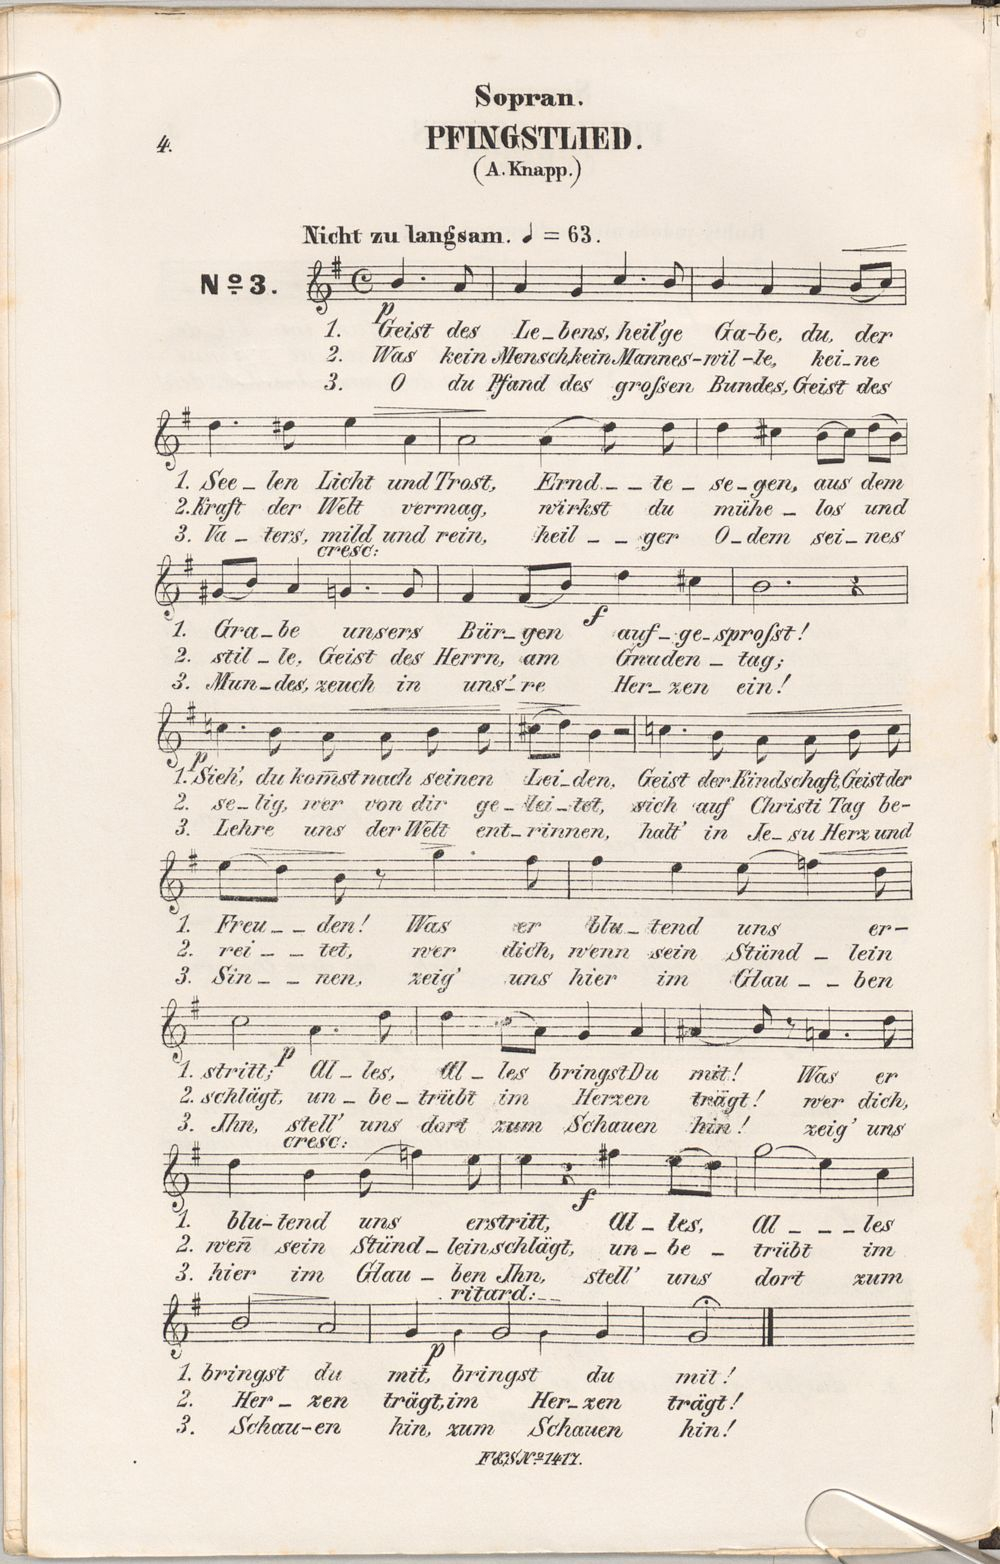 Sopran.
4.
PFINGSTLIED.
(A. Knapp.)
Nicht zu langsam. ♩ = 63.
No 3.
p
1. Geist des Le_bens, heil'ge Ga-be, du, der
2. Was kein Mensch kein Mannes-wil-le, kei_ne
3. O du Pfand des groſsen Bundes, Geist des
1. See_len Licht und Trost, Ernd_ _te_se_gen, aus dem
2. Kraft der Welt vermag, wirkst du mühe_los und
3. Va_ters, mild und rein, heil_ _ger O_dem sei_nes
cresc:
f
1. Gra_be unsers Bür_gen auf_ge_sproſst!
2. stil_le, Geist des Herrn, am Gnaden_tag;
3. Mun_des, zeuch in uns'_re Her_zen ein!
p
1. Sieh', du kom̅st nach seinen Lei_den, Geist der Kindschaft, Geist der
2. se_lig, wer von dir ge_lei_tet, sich auf Christi Tag be-
3. Lehre uns der Welt ent_rinnen, halt' in Je_su Herz und
1. Freu_ _den! Was er blu_tend uns er-
2. rei_ _tet, wer dich, wenn sein Stünd_lein
3. Sin_ _nen, zeig' uns hier im Glau_ _ben
p
1. stritt; Al_les, Al_les bringst Du mit! Was er
2. schlägt, un_be_trübt im Herzen trägt! wer dich,
3. Ihn, stell' uns dort zum Schauen hin! zeig' uns
cresc:
f
1. blu-tend uns erstritt, Al_les, Al_ _ _les
2. wen̅ sein Stünd_lein schlägt, un_be_trübt im
3. hier im Glau_ben Ihn, stell' uns dort zum
ritard:
p
1. bringst du mit, bringst du mit!
2. Her_zen trägt, im Her_zen trägt!
3. Schau-en hin, zum Schauen hin!
F&S No 1417.